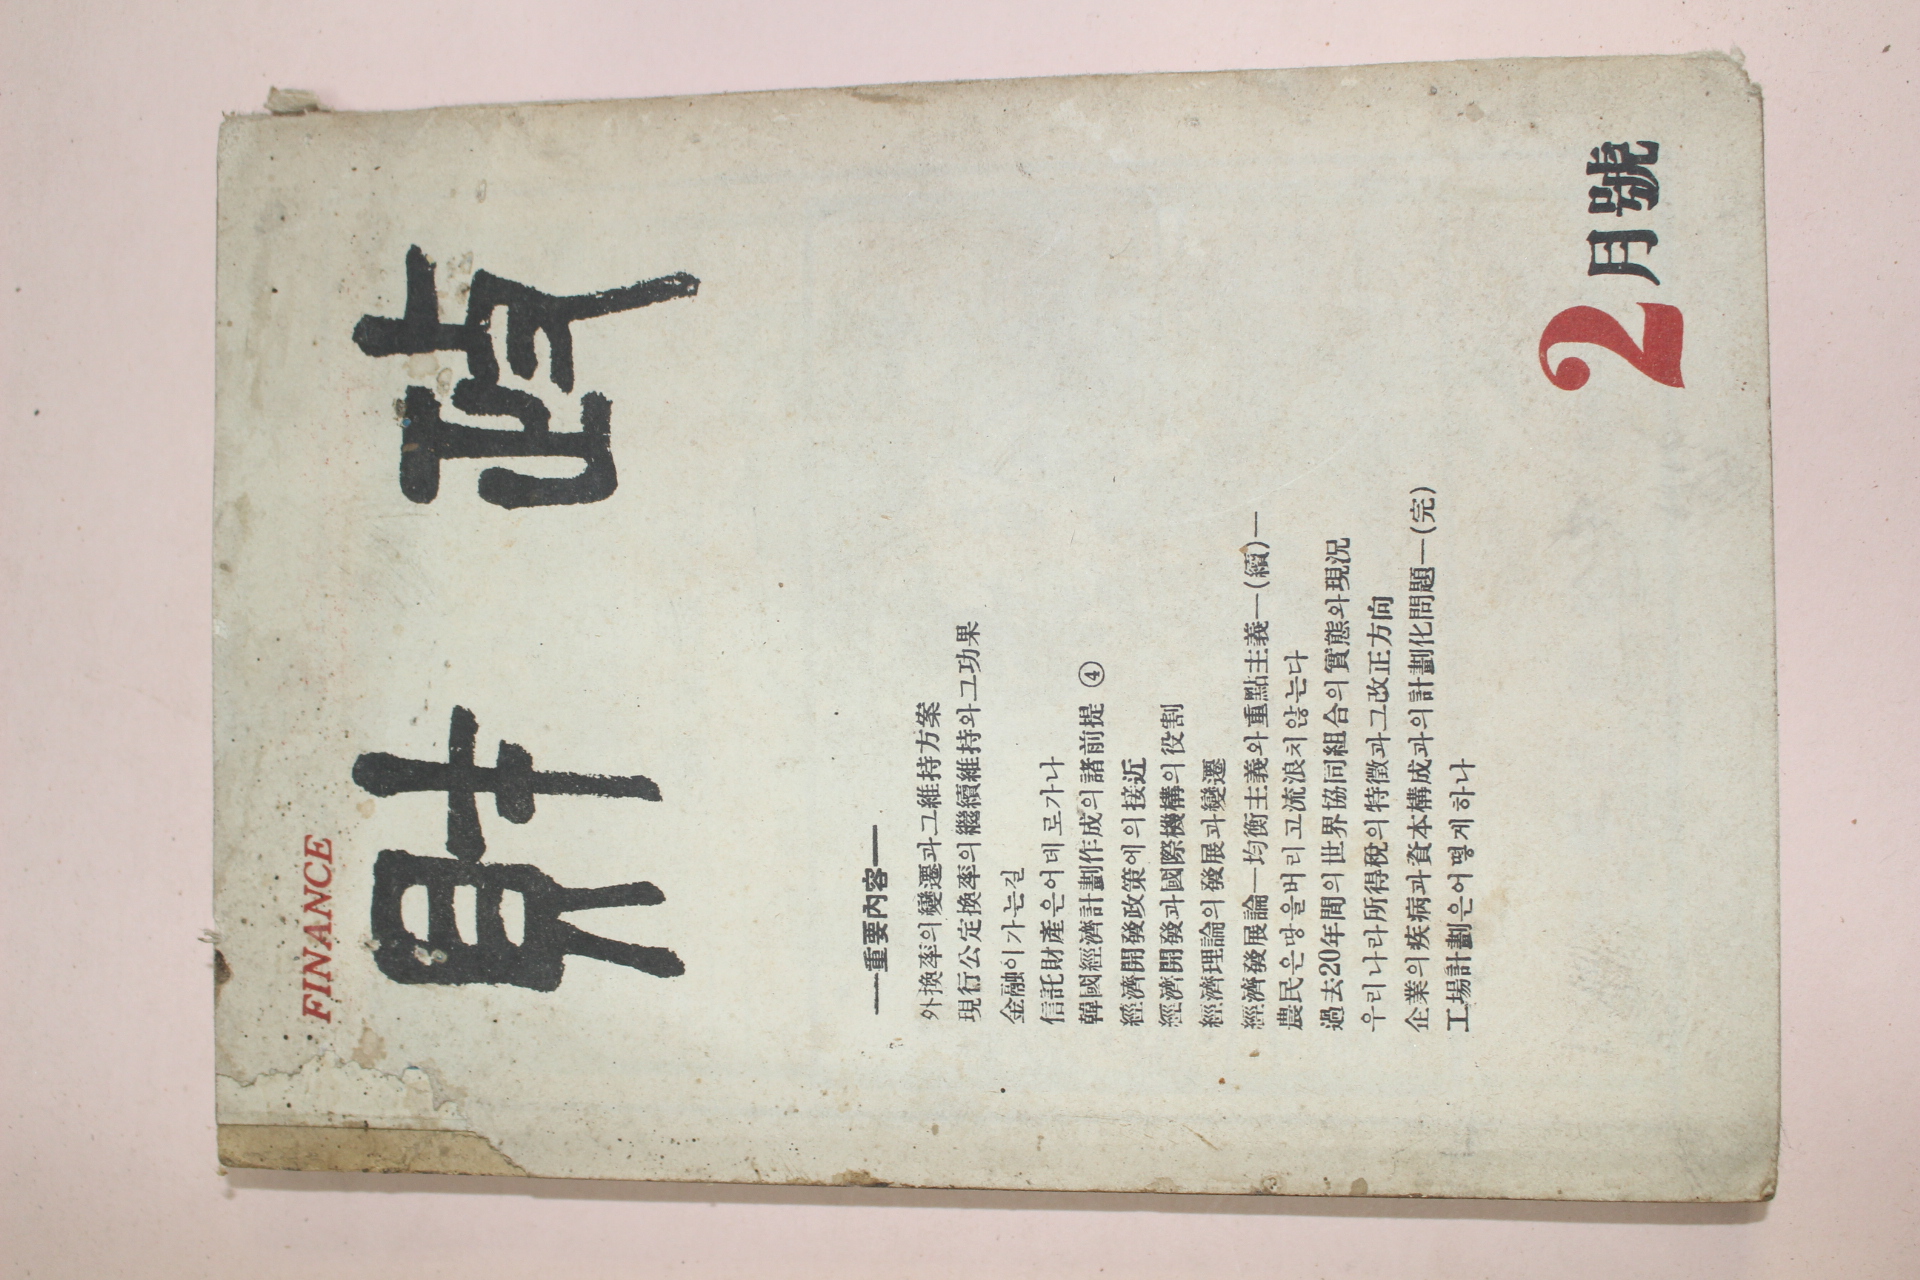 FINANCE
財政
―重要內容―
外換率의變遷과그維持方案
現行公定換率의繼續維持와그功果
金融이가는길
信託財產은어데로가나
韓國經濟計劃作成의諸前提 ④
經濟開發政策에의接近
經濟開發과國際機構의役割
經濟理論의發展과變遷
經濟發展論―均衡主義와重點主義―(續)―
農民은땅을버리고流浪치않는다
過去20年間의世界協同組合의實態와現況
우리나라所得稅의特徵과그改正方向
企業의疾病과資本構成과의計劃化問題―(完)
工場計劃은어떻게하나
2月號